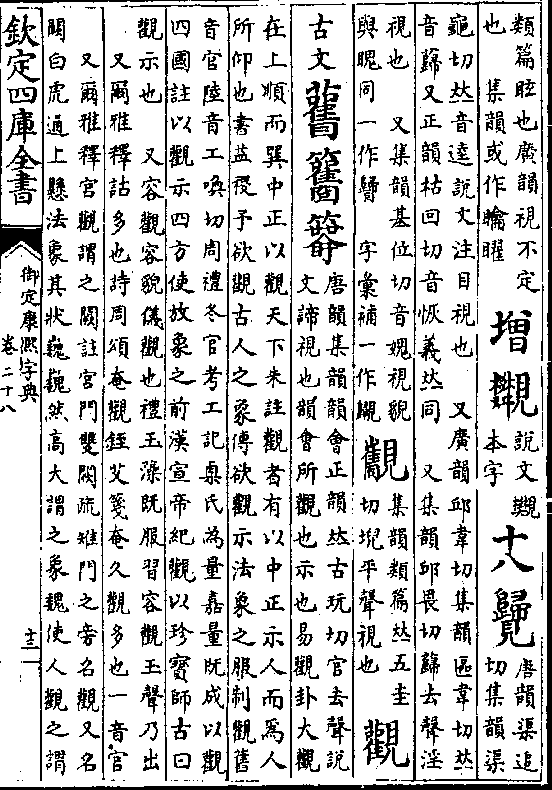 類篇眐也廣韻視不定
也 集韻或作
增
說文
本字
十八
唐韻渠追
切集韻渠
龜切𠀤音逵說文注目視也 又廣韻邱韋切集韻區韋切𠀤
音蘬又正韻枯回切音恢義𠀤同 又集韻邱畏切蘬去聲淫
視也 又集韻基位切音媿視貌
與䁛同一作 字彙補一作
集韻類篇𠀤五圭
切堄平聲視也
觀
古文
唐韻集韻韻會正韻𠀤古玩切官去聲說
文諦視也韻會所觀也示也易觀卦大觀
在上順而巽中正以觀天下朱註觀者有以中正示人而爲人
所仰也書益稷予欲觀古人之象傳欲觀示法象之服制觀舊
音官陸音工喚切周禮冬官考工記㮚氏為量嘉量旣成以觀
四國註以觀示四方使放象之前漢宣帝紀觀以珍寶師古曰
觀示也 又容觀容貌儀觀也禮玉藻旣服習容觀玉聲乃出
又爾雅釋詁多也詩周頌奄觀銍艾箋奄久觀多也一音官
又爾雅釋宮觀謂之闕註宮門雙闕疏雉門之旁名觀又名
闕白虎通上懸法象其狀巍巍然高大謂之象魏使人觀之謂
欽定四庫全書
御定康熙字典
卷二十八
十三